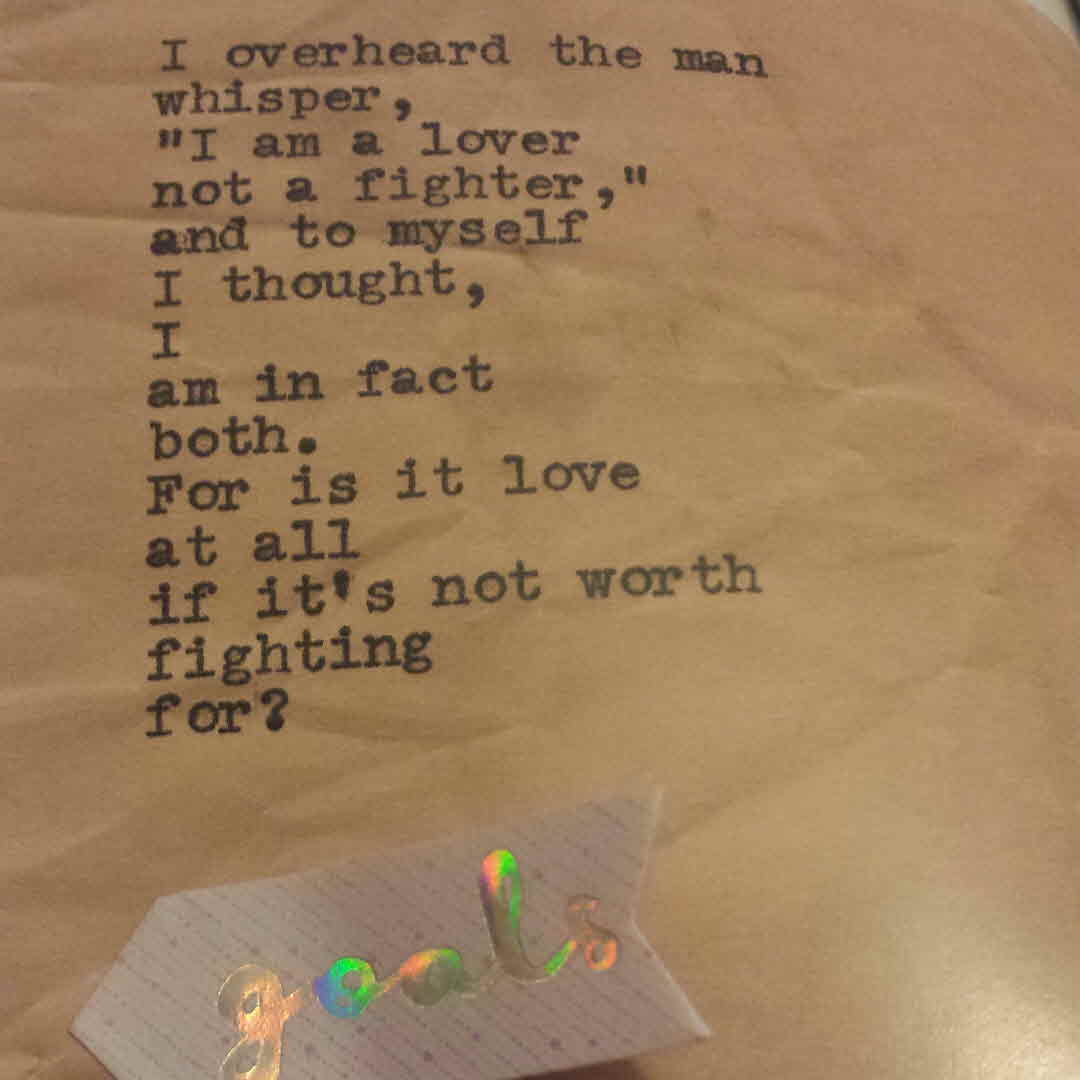 I overheard the man
whisper,
"I am a lover
not a fighter,"
and to myself
I thought,
I
am in fact
both.
For is it love
at all
if it's not worth
fighting
for?
goals